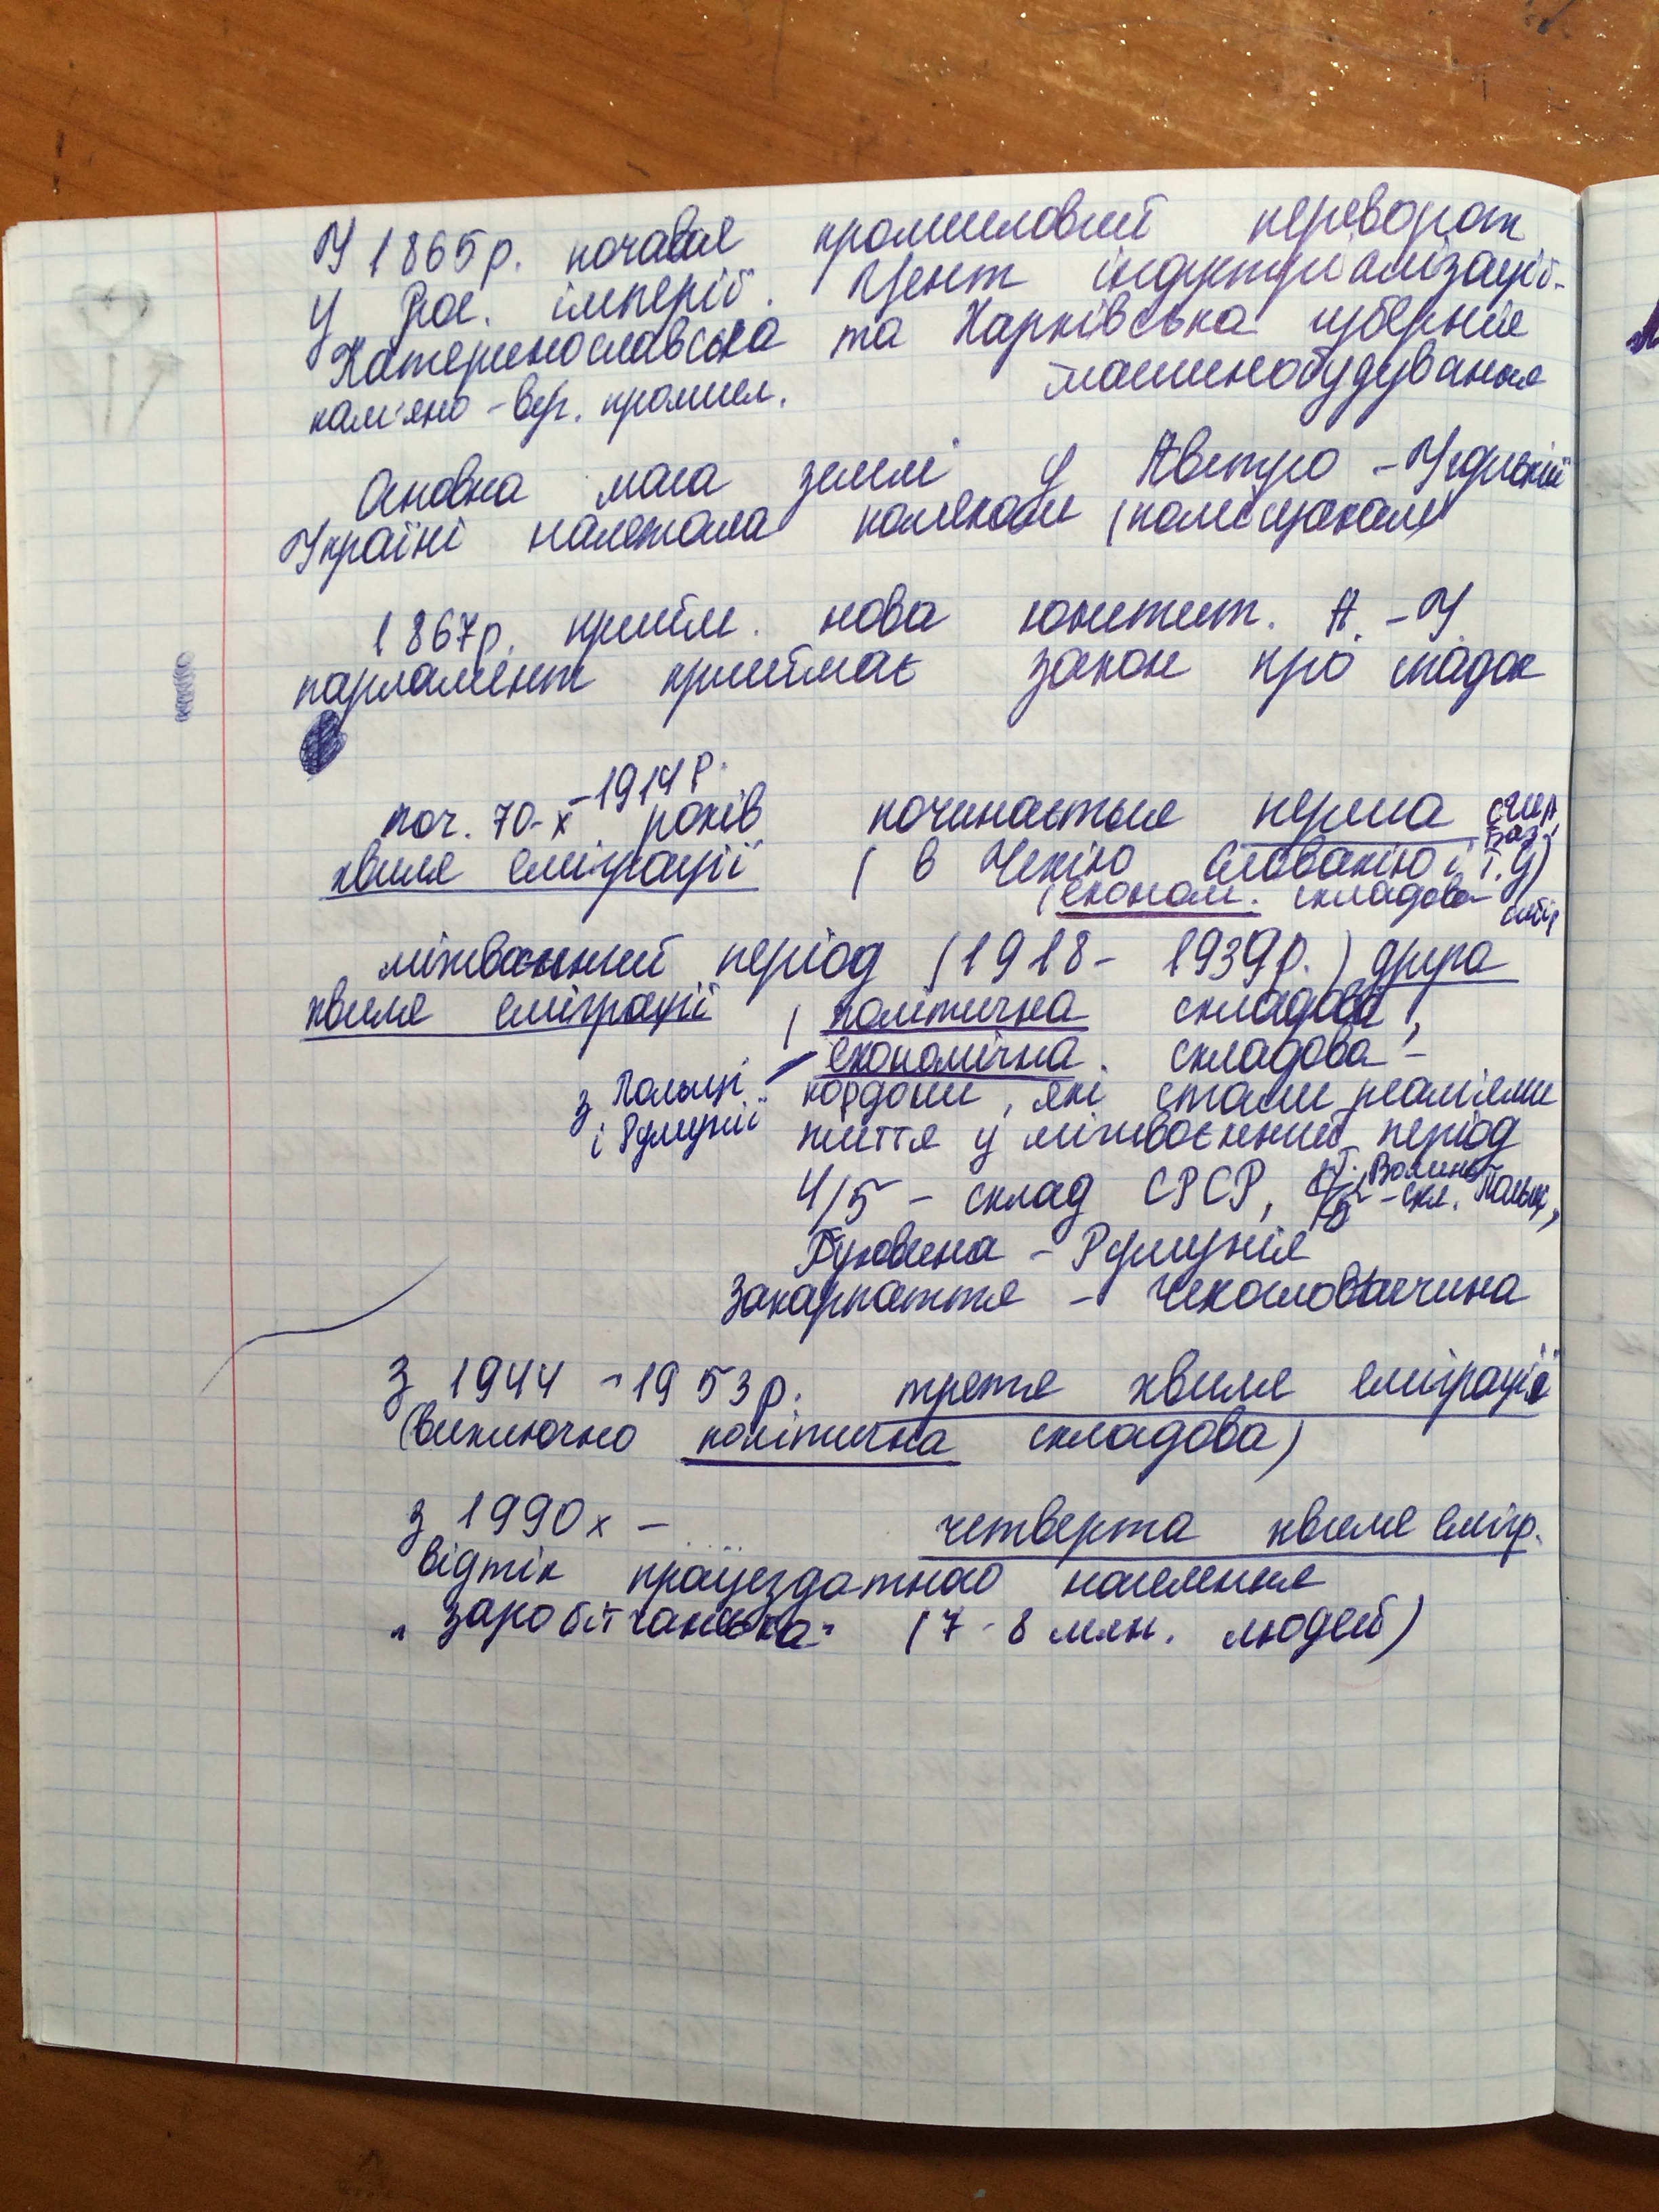 У 1865р. почався промисловий переворот
у Рос. імперії. Цент індустріалізації-
Катеринославська та Харківська губернія
кам'яно-вуг. промисл. машинобудування
Основна маса землі у Австро-Угорській
Україні належала полякам (поміщикам)
1867р. прийм. нова конститут. А.-У.
парламент приймає закон про спадок
-1914р.
поч. 70-х років починається перша США,
Браз.,
хвиля еміграції (в Чехію Словакію і т.д)
(економ. складова
міжвоєнний період (1918- 1939р.) друга
хвиля еміграції ( політична складова,
економічна складова-
з Польщі і Румунії
кордони, які стали реаліями
життя у міжвоєнний період
4/5 - склад СРСР, Волинь
- скл. Польщі,
Буковина - Румунія
Закарпаття - Чехословаччина
З 1944 - 1953р. третя хвиля еміграції
(виключно політична складова)
з 1990х - четверта хвиля емігр.
відтік працездатного населення
"заробітчанська" (7-8 млн. людей)